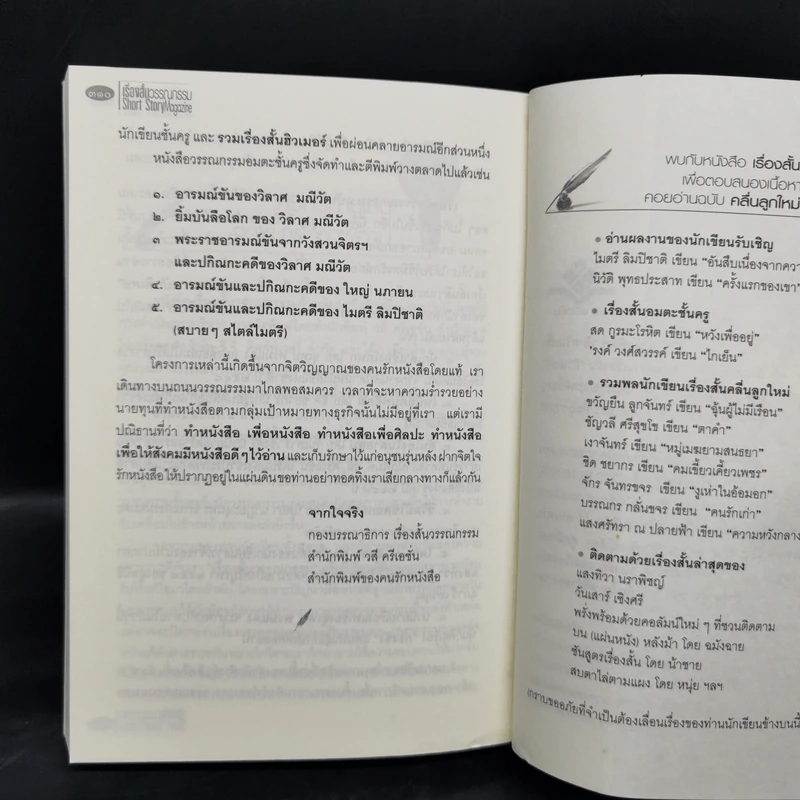 ๓๑๐
เรื่องสั้นวรรณกรรม
Short Story Magazine
นักเขียนชั้นครู และ รวมเรื่องสั้นฮิวเมอร์ เพื่อผ่อนคลายอารมณ์อีกส่วนหนึ่ง
หนังสือวรรณกรรมอมตะชั้นครูซึ่งจัดทำและตีพิมพ์วางตลาดไปแล้วเช่น
๑. อารมณ์ขันของวิลาศ มณีวัต
๒. ยิ้มบันลือโลก ของ วิลาศ มณีวัต
๓ พระราชอารมณ์ขันจากวังสวนจิตรฯ
และปกิณกะคดีของวิลาศ มณีวัต
๔. อารมณ์ขันและปกิณกะคดีของ ใหญ่ นภายน
๕. อารมณ์ขันและปกิณกะคดีของ ไมตรี ลิมปิชาติ
(สบายๆ สไตล์ไมตรี)
โครงการเหล่านี้เกิดขึ้นจากจิตวิญญาณของคนรักหนังสือโดยแท้ เรา
เดินทางบนถนนวรรณกรรมมาไกลพอสมควร เวลาที่จะหาความร่ำรวยอย่าง
นายทุนที่ทำหนังสือตามกลุ่มเป้าหมายทางธุรกิจนั้นไม่มีอยู่ที่เรา แต่เรามี
ปณิธานที่ว่า ทำหนังสือ เพื่อหนังสือ ทำหนังสือเพื่อศิลปะ ทำหนังสือ
เพื่อให้สังคมมีหนังสือดีๆ ไว้อ่าน และเก็บรักษาไว้แก่อนุชนรุ่นหลัง ฝากจิตใจ
รักหนังสือให้ปรากฏอยู่ในแผ่นดิน ขอท่านอย่าทอดทิ้งเราเสียกลางทางก็แล้วกัน
จากใจจริง
กองบรรณาธิการ เรื่องสั้นวรรณกรรม
สำนักพิมพ์ วสี ครีเอชั่น
สำนักพิมพ์ของคนรักหนังสือ
พบกับหนังสือ เรื่องสั้น
เพื่อตอบสนองเนื้อหา
คอยอ่านฉบับ คลื่นลูกใหม่
• อ่านผลงานของนักเขียนรับเชิญ
ไมตรี ลิมปิชาติ เขียน "อันสืบเนื่องจากควา
นิวัติ พุทธประสาท เขียน "ครั้งแรกของเขา"
• เรื่องสั้นอมตะชั้นครู
สด กูรมะโรหิต เขียน "หวังเพื่ออยู่"
'รงค์ วงศ์สวรรค์ เขียน "ไกเย็น"
• รวมพลนักเขียนเรื่องสั้นคลื่นลูกใหม่
ขวัญยืน ลูกจันทร์ เขียน "อุ้นผู้ไม่มีเรือน"
ชัญวลี ศรีสุขโข เขียน "ตาคำ"
เงาจันทร์ เขียน "หมู่เมฆยามสนธยา"
ชิด ชยากร เขียน "คมเขี้ยวเคี้ยวเพชร"
จักร จันทรขจร เขียน "งูเห่าในอ้อมอก"
บรรณกร กลั่นขจร เขียน "คนรักเก่า"
แสงศรัทธา ณ ปลายฟ้า เขียน "ความหวังกลาง
• ติดตามด้วยเรื่องสั้นล่าสุดของ
แสงทิวา นราพิชญ์
วันเสาร์ เชิงศรี
พรั่งพร้อมด้วยคอลัมน์ใหม่ ๆ ที่ชวนติดตาม
บน (แผ่นหนัง) หลังม้า โดย ฉมังฉาย
ชันสูตรเรื่องสั้น โดย น้าชาย
สบตาไล่ตามแผง โดย หนุ่ย ฯลฯ
(กราบขออภัยที่จำเป็นต้องเลื่อนเรื่องของท่านนักเขียนข้างบนนี้